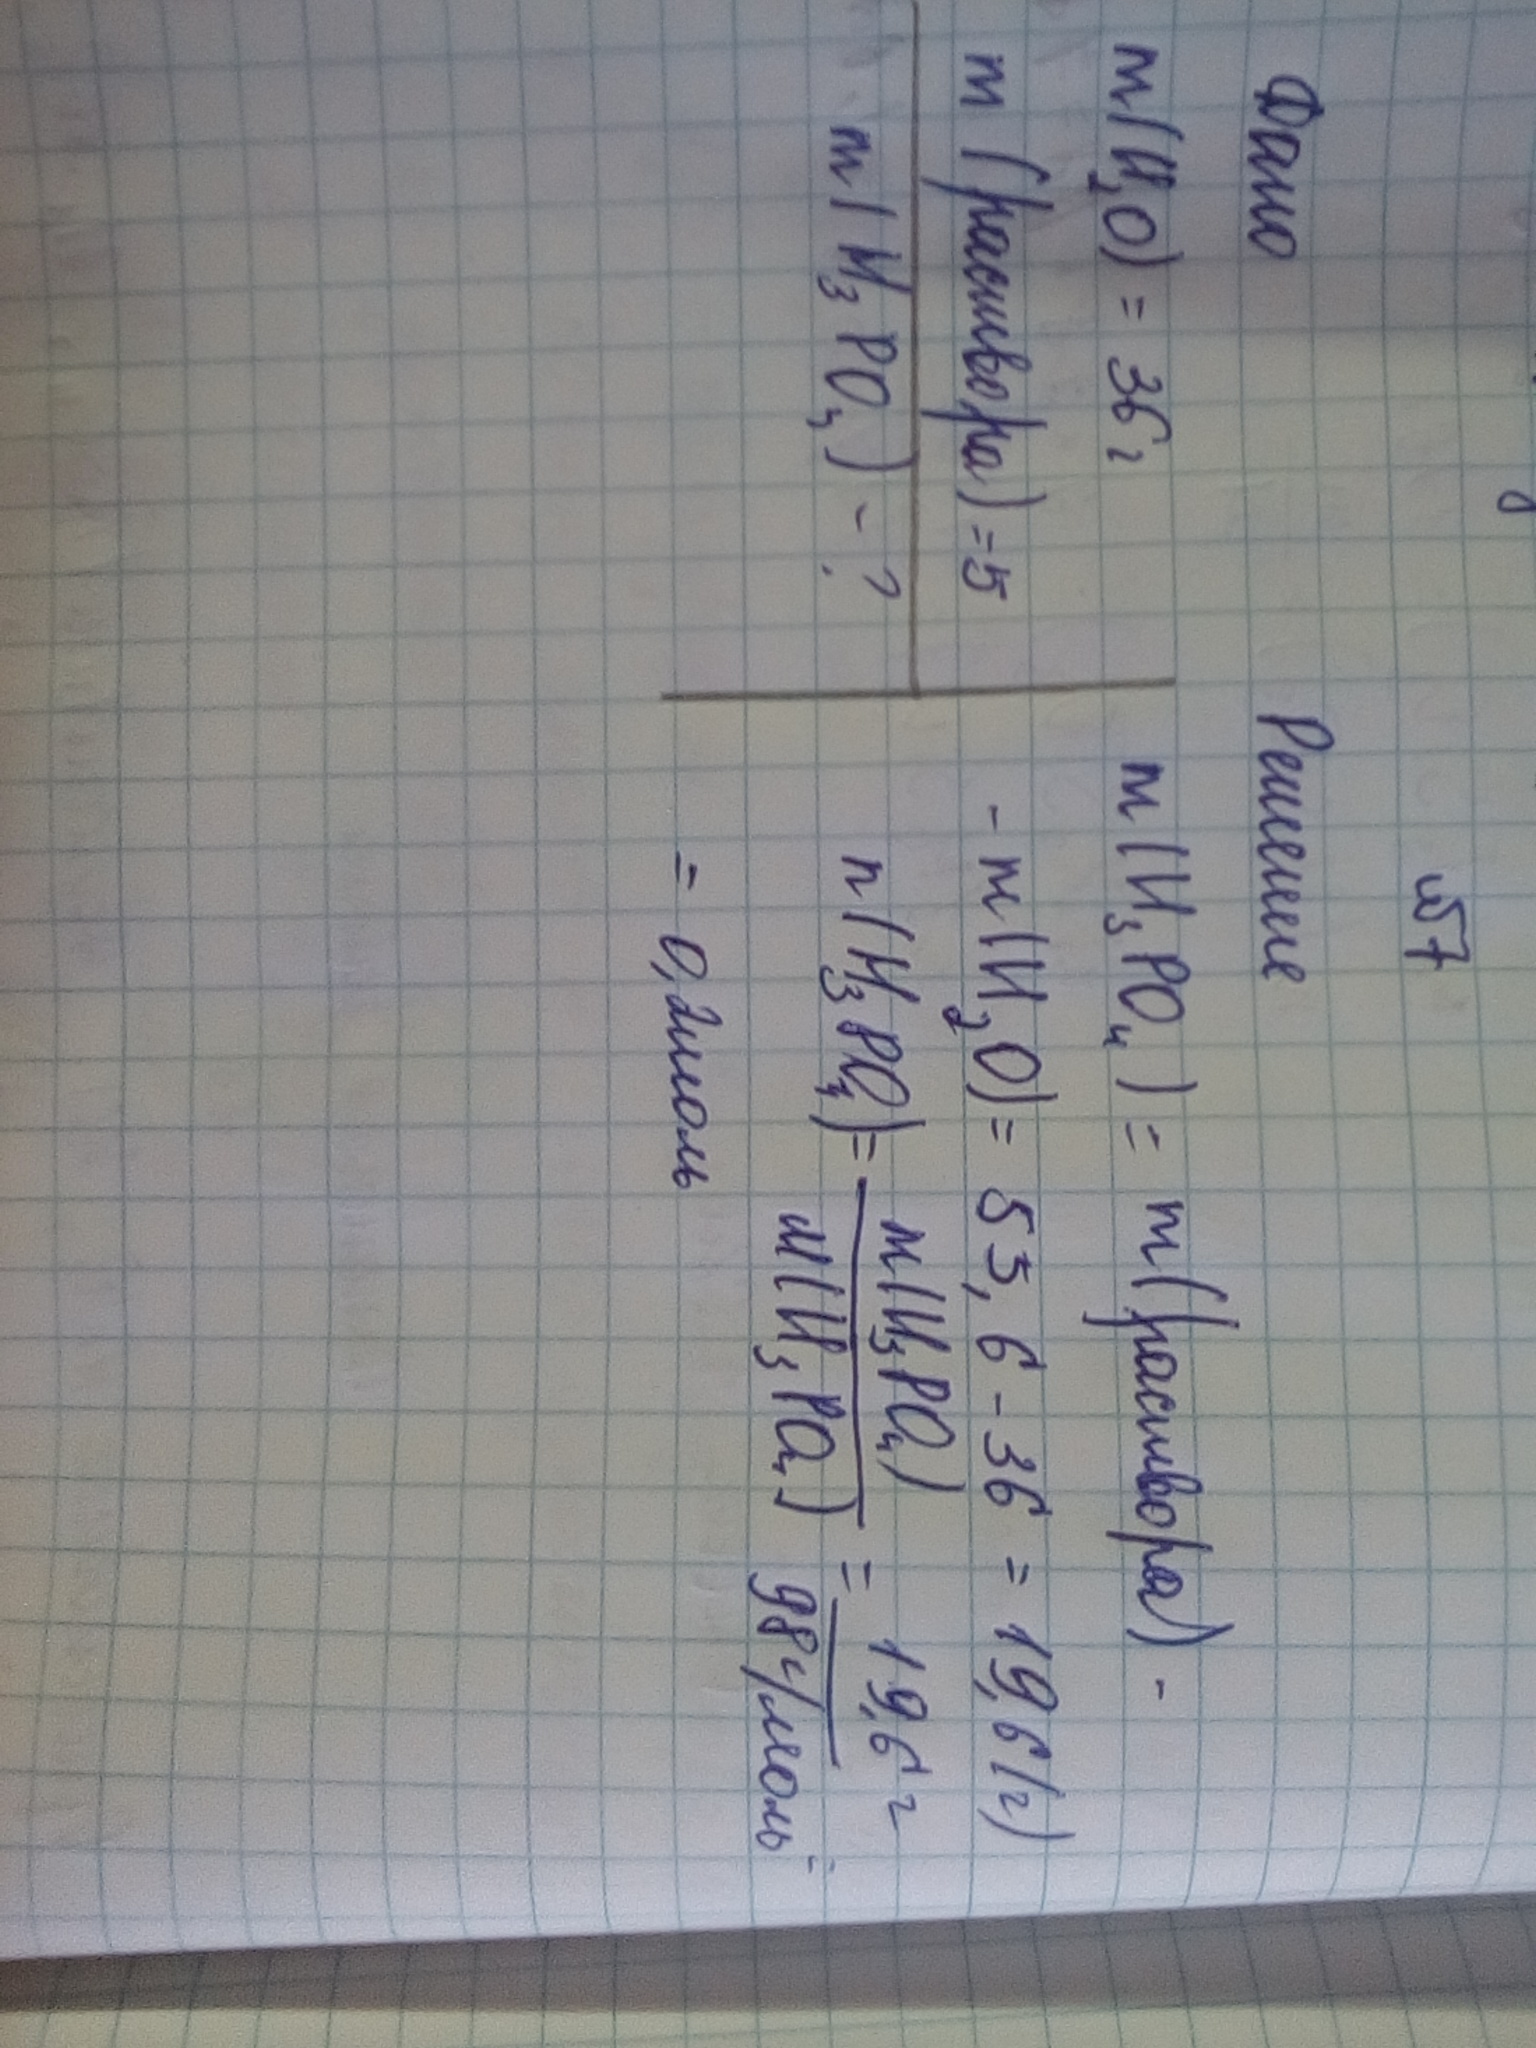 №7
Дано
m(H₂O) = 36 г
m (раствора) = 5
m(H₃PO₄) - ?
Решение
m(H₃PO₄) = m(раствора) -
- m(H₂O) = 55,6 - 36 = 19,6 (г)
n(H₃PO₄) = m(H₃PO₄) / M(H₃PO₄) = 19,6 г / 98 г/моль =
= 0,2 моль